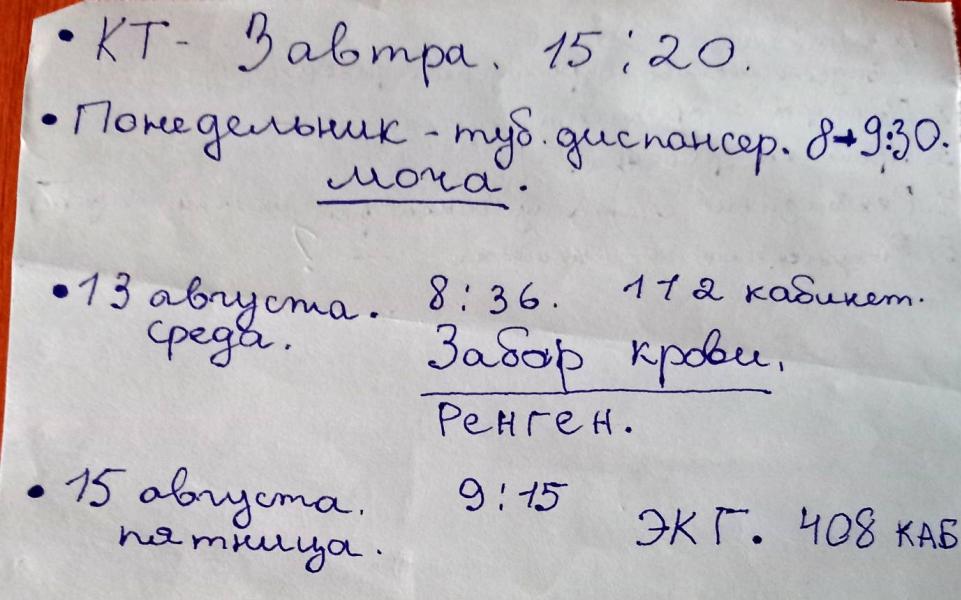 • КТ - Завтра. 15:20.
• Понедельник - туб. диспансер. 8→9:30.
моча.
• 13 августа. 8:36. 112 кабинет.
среда. Забор крови.
Ренген.
• 15 августа. 9:15
пятница. ЭКГ. 408 КАБ